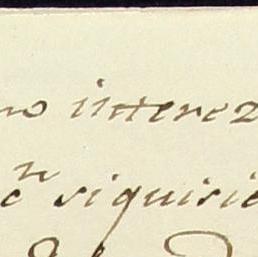 no interez
cⁿ siquisie